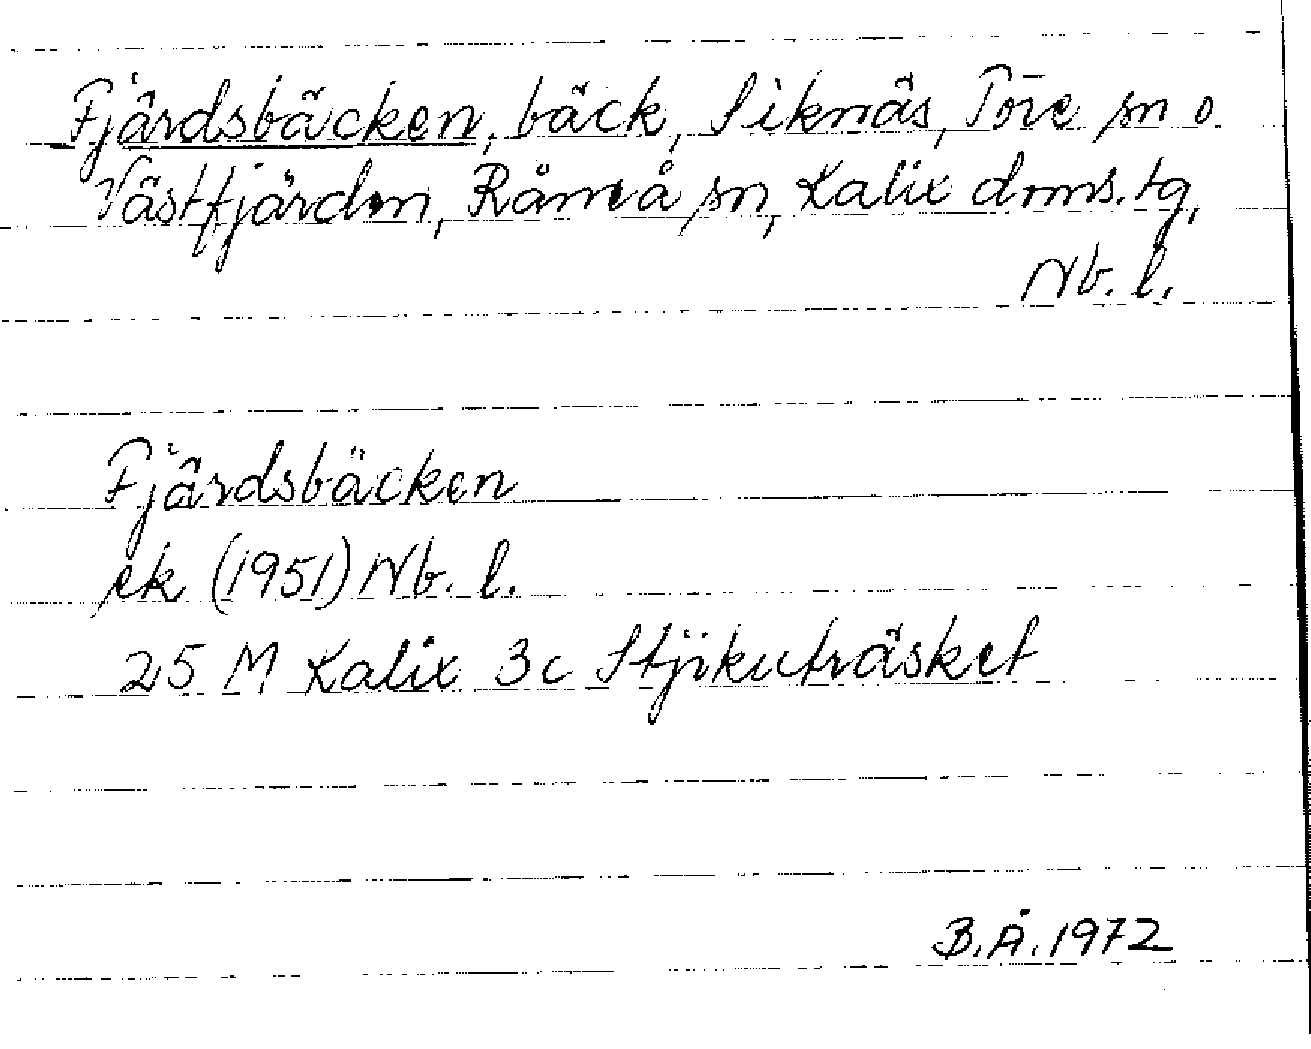 Fjärdsbäcken, bäck, Siknäs, Töre sn o
Västfjärden, Råneå sn, Kalix doms.tg,
Nb. l.
Fjärdsbäcken
ek (1951) Nb. l.
25 M Kalix 3c Stjikuträsket
B.Å. 1972